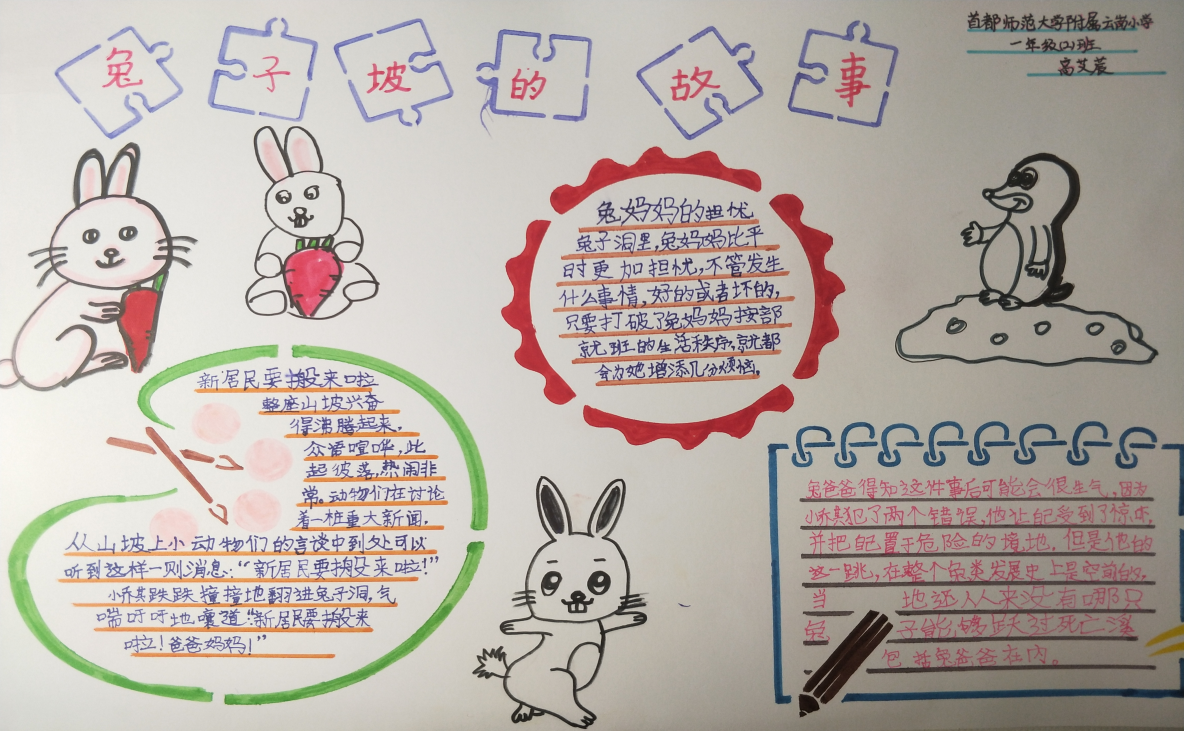 兔子坡的故事
首都师范大学附属云岗小学
一年级(2)班
高艾宸
兔妈妈的担忧
兔子洞里,兔妈妈比平
时更加担忧,不管发生
什么事情,好的或者坏的,
只要打破了兔妈妈按部
就班的生活秩序,就都
会为她增添几分烦恼。
新居民要搬来啦
整座山坡兴奋
得沸腾起来,
众声喧哗,此
起彼落,热闹非
常。动物们在讨论
着一桩重大新闻,
从山坡上小动物们的言谈中到处可以
听到这样一则消息:“新居民要搬来啦!”
小乔其跌跌撞撞地翻进兔子洞,气
喘吁吁地嚷道:“新居民要搬来
啦!爸爸妈妈!”
兔爸爸得知这件事后可能会很生气,因为
小乔其犯了两个错误,他让自己受到了惊吓,
并把自己置于危险的境地。但是他的
这一跳,在整个兔类发展史上是空前的,
当 地还从来没有哪只
兔 子能够跃过死亡溪
包括兔爸爸在内。